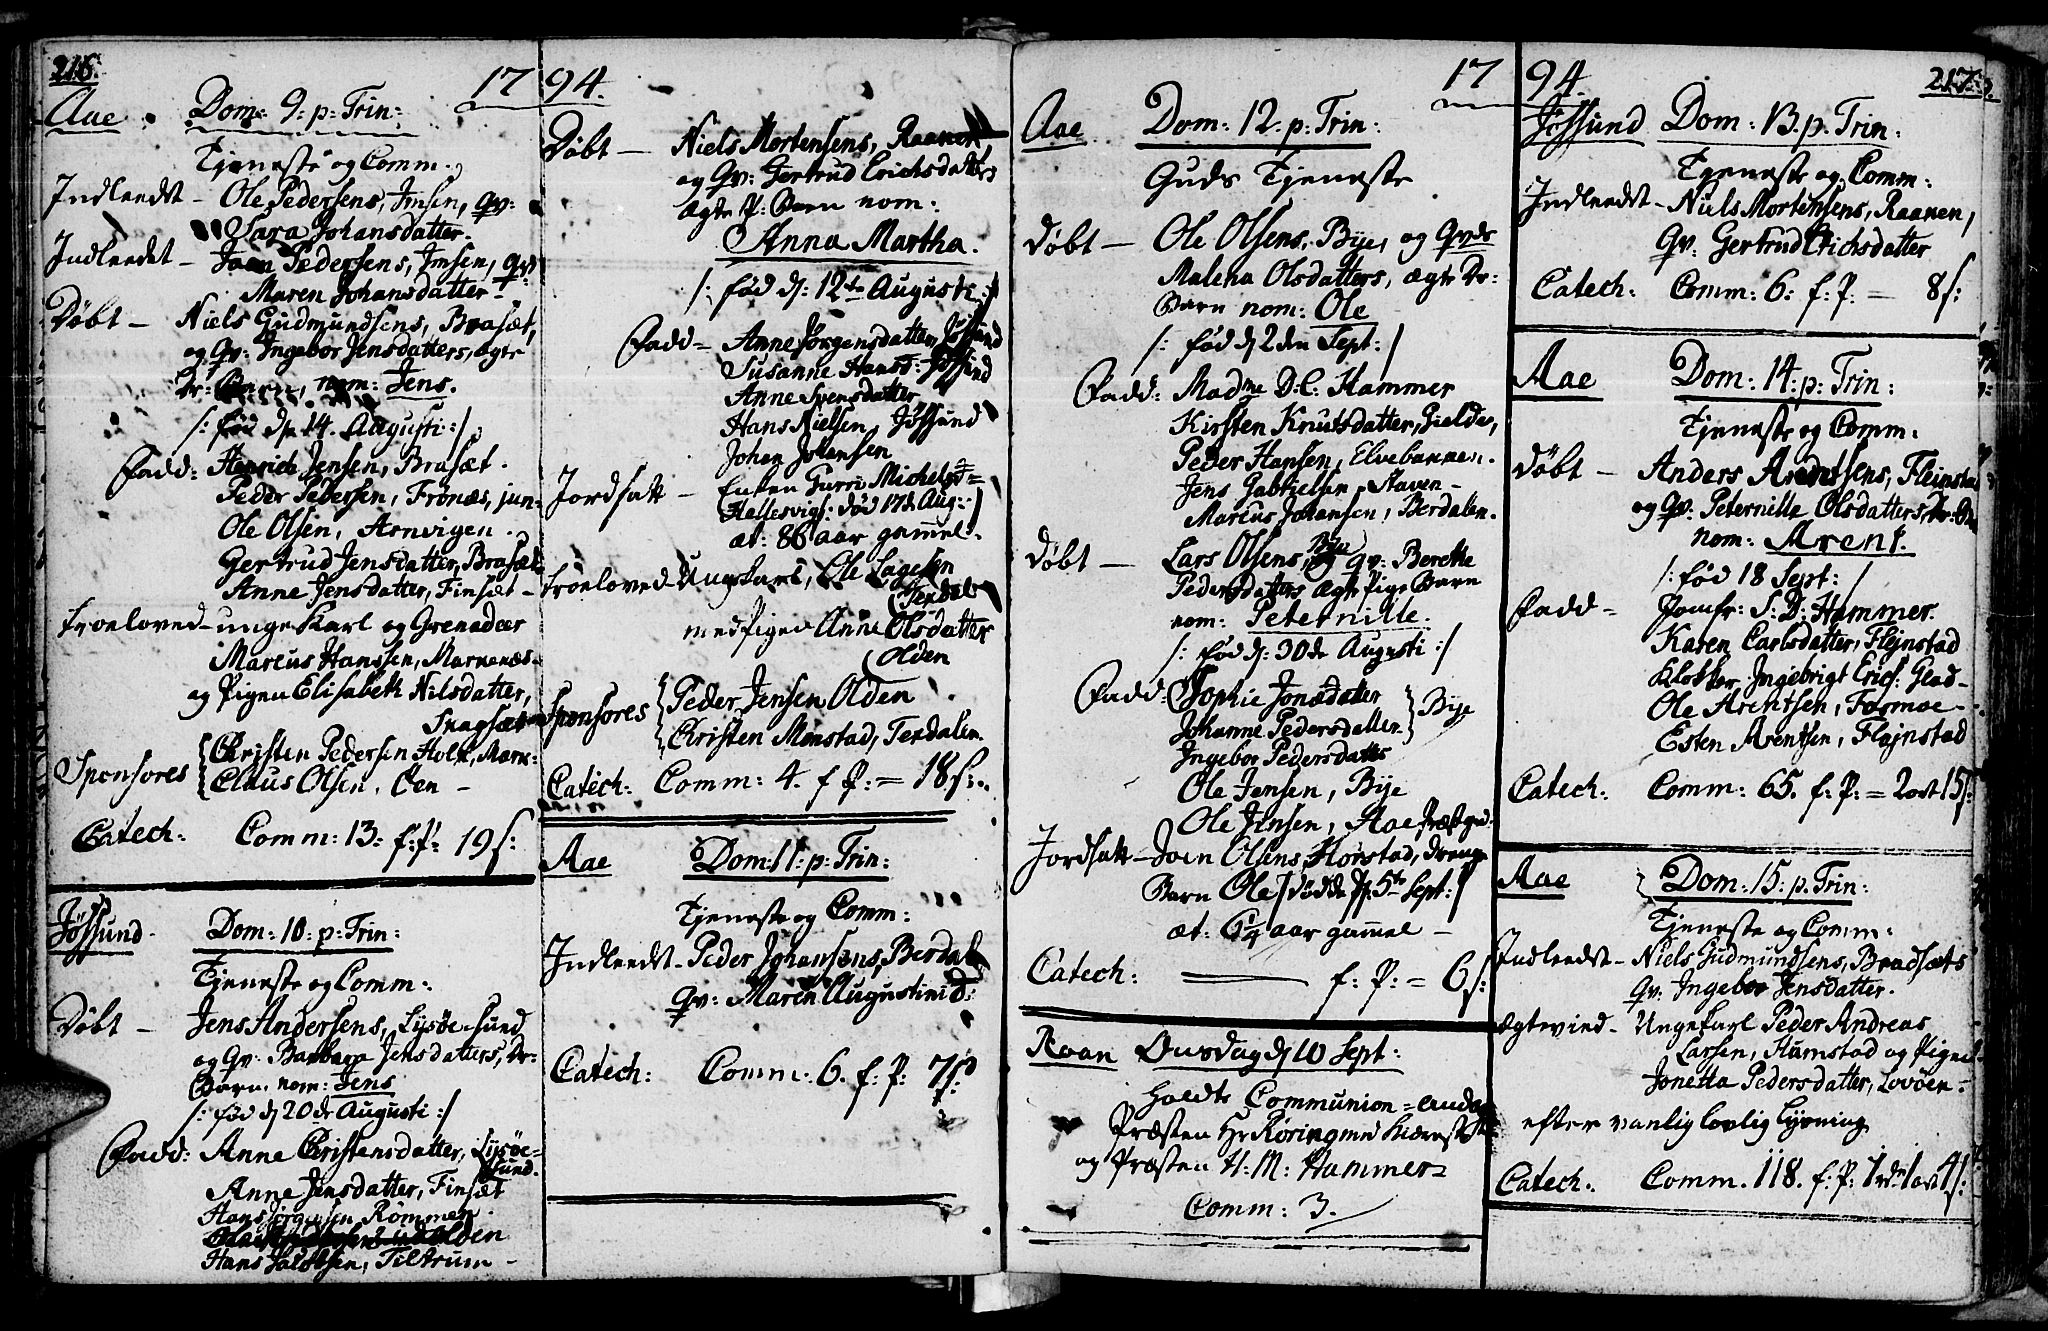 216.
1794.
Aae. Dom: 9. p: Trin:
Tjeneste og Comm.
Indleedt - Ole Pedersens, Imsen, qv:
Sara Johansdatter.
Indleedet - Joen Pedersens, Imsen, qv
Maren Johansdatter -
Døbt - Niels Gudmundsens, Brasæt,
og Qv: Ingebor Jensdatters, ægte
Dr: Barn, nom: Jens.
/: fød d. 14. Augusti :/
Fadd: Henrich Jensen, Brasæt.
Peder Pedersen, Fronæs, jun-
Ole Olsen, Arnvigen.
Gertrud Jensdatter, Brasæt
Anne Jensdatter, Finsæt -
Troeloved - unge Karl og Grenadeer
Marcus Hanssen, Marnenæs
og Pigen Elisabeth Nilsdatter,
Sponsores Christen Pedersen Holm, Marn:
Claus Olsen, Öen -
Catech: Comm: 13: f: P: 19 s:
Jössund. Dom: 10: p: Trin:
Tjeneste og Comm:
Døbt - Jens Andersens, Lysöesund
og Qv: Barbara Jensdatters, Dr:
Barn nom: Jens
/: fød d 20de Augusti :/
Fadd: Anne Christensdatter, Lysöe=
sund.
Anne Jensdatter, Finsæt
Hans Jörgensen Römmen.
Hans Jakobsen, Tiltrum -
Døbt - Niels Mortensens, Raanen,
og Qv: Gertrud Erichsdatters
ægte P: Barn nom:
Anna Martha.
/: fød d: 12te Augusti :/
Fadd - Anne Jörgensdatter, Jössund
Susanne Hansd: Jössund
Anne Svensdatter
Hans Nielsen, Jössund
Johan Johansen
Jordsatt - Enken Gurri Michelsd=
Hallesvig: død 17de Aug:/
æt: 86 aar gammel.
Troeloved Ungekarl, Ole Lagesen
Terdal
med Pigen Anne Olsdatter
Olden
Sponsores Peder Jensen Olden
Christen Monstad, Terdalen
Catech: Comm: 4. f P: = 18 s:
Aae Dom: 11: p: Trin:
Tjeneste og Comm:
Indleedet - Peder Johansens, Berdal
qv: Maren Augustini D:
Catech: Comm: 6. f: P: 7 s:
1794.
217.
Aae Dom: 12. p: Trin:
Guds Tjeneste
Døbt - Ole Olsens, Bye, og Qvds
Malena Olsdatters, ægte Dr:
Barn nom: Ole
/: fød d 2den Sept: /
Fadd: Madme D. C. Hammer
Kirsten Knutsdatter, Gielde,
Peder Hansen, Elvebannen.
Jens Gabrielsen, Haven -
Marcus Johansen, Berdalen.
Døbt - Lars Olsens, Bye og qv: Berethe
Pedersdatters ægte Pige Barn
nom: Peternille.
/: fød d: 30de Augusti :/
Fadd: Sophie Jonsdatter,
Johanne Pedersdatter
Bye
Ingebor Pedersdatter
Ole Jensen, Bye
Ole Jensen, Aae Præstgrd:
Jordsatt - Joen Olsens, Horstad, Drenge
Barn Ole / døde d: 5te Sept: /
æt: 6 1/4 aar gammel -
Catech: f: P: = 6 s:
Raan Onsdag d 10 Sept:
holdte Communion
Præsten Hr Röring
og Præsten H: M: Hammer
Comm: 3.
Jössund Dom: 13. p: Trin:
Tjeneste og Comm:
Indleedt - Niels Mortensens, Raanen,
Qv. Gertrud Erichsdatter
Catech: Comm: 6: f: P: - 8 s:
Aae Dom: 14: p: Trin:
Tjeneste og Comm.
Døbt - Anders Arentsens, Fleinstad
og Qv: Peternille Olsdatters, Dr: Bn
nom: Arent.
/: fød 18 Sept: /
Fadd - Jomfr: S: D: Hammer.
Karen Carlsdatter, Flejnstad
Klokker Ingebrigt Erics: Glad-
Ole Arentsen, Formoe -
Esten Arentsen, Flejnstad
Catech: Comm: 65. f: P: = 2 ort 15 s:
Aae Dom: 15: p: Trin:
Tjeneste og Comm:
Indleedt - Niels Gudmundsens, Bradsæts
qv: Ingebor Jensdatter.
Ægtevied - Ungekarl Peder Andreas
Larsen, Humstad og Pigen
Jonetta Pedersdatter, Lovöen -
efter vanlig lovlig Lysning
Catech: Comm. 118. f: P: 1 rd: 1 ort 4 s: